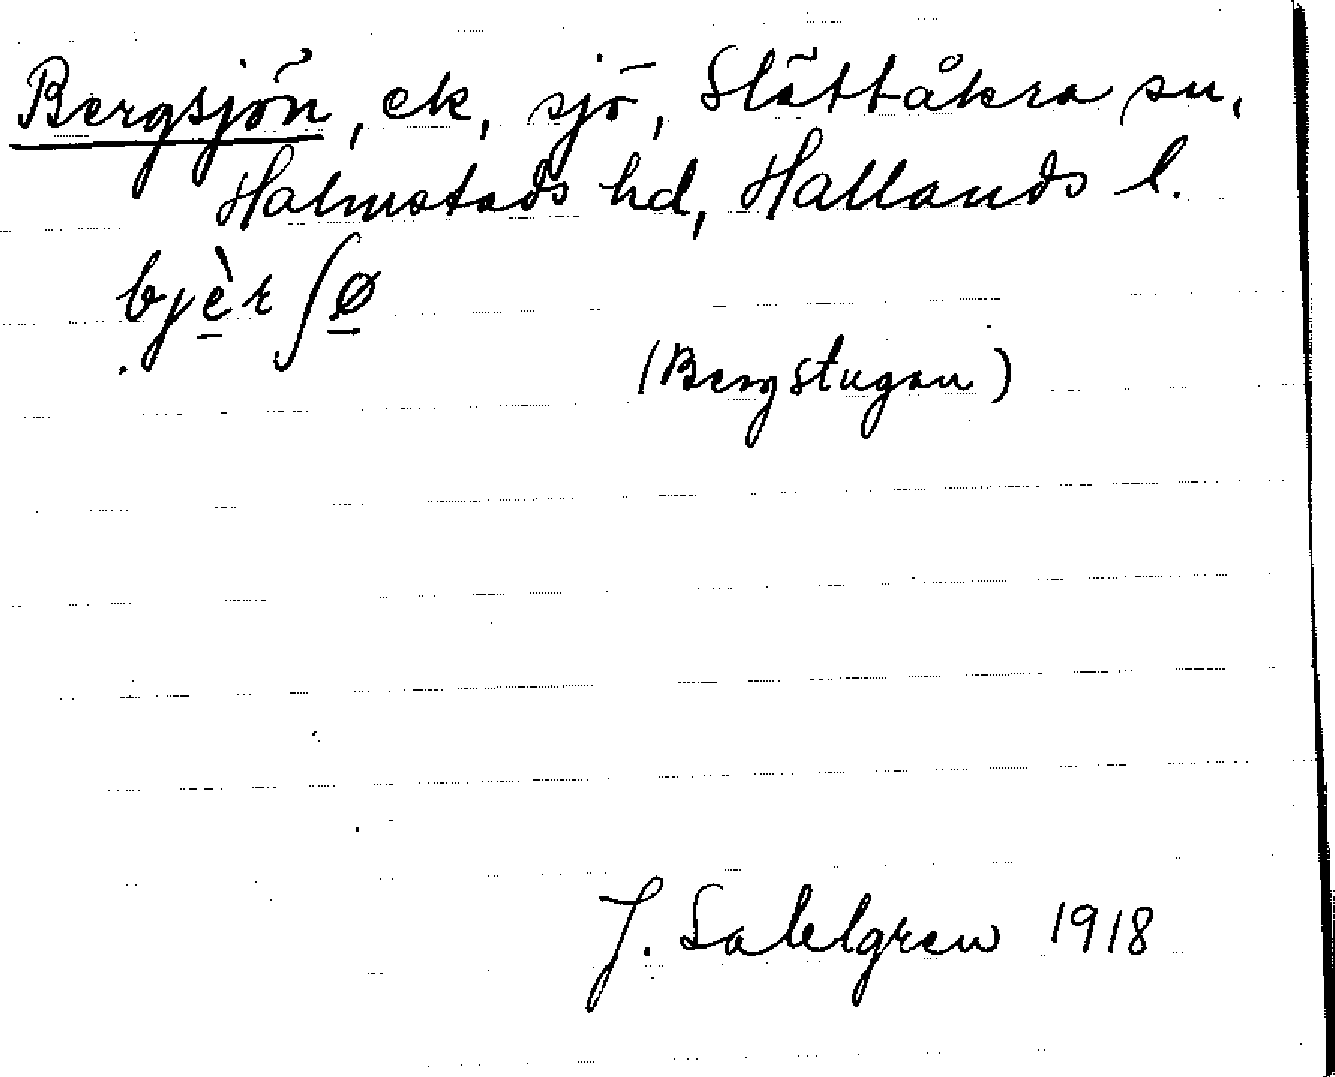 Bergsjön, ek, sjö, Slättåkra sn,
Halmstads hd, Hallands l.
bjèr ʃø
(Bergstugan)
J. Sahlgren 1918